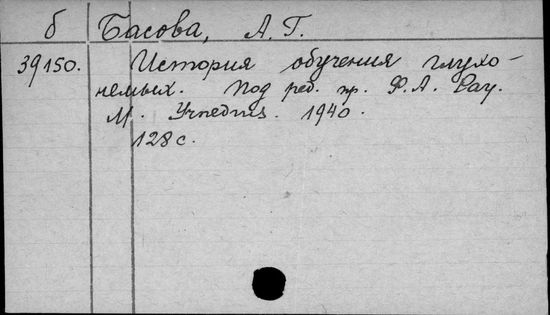 б Басова, А. Г.
39150. История обучения глухо-
немых. Под ред. пр. Ф. А. Рау.
М. Учпедгиз. 1940.
128 с.